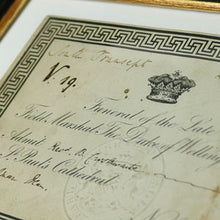 South Transept
No. 19.
Funeral of the Late
Field Marshal The Duke of Welli
Admit Revd.
St. Paul's Cathedral